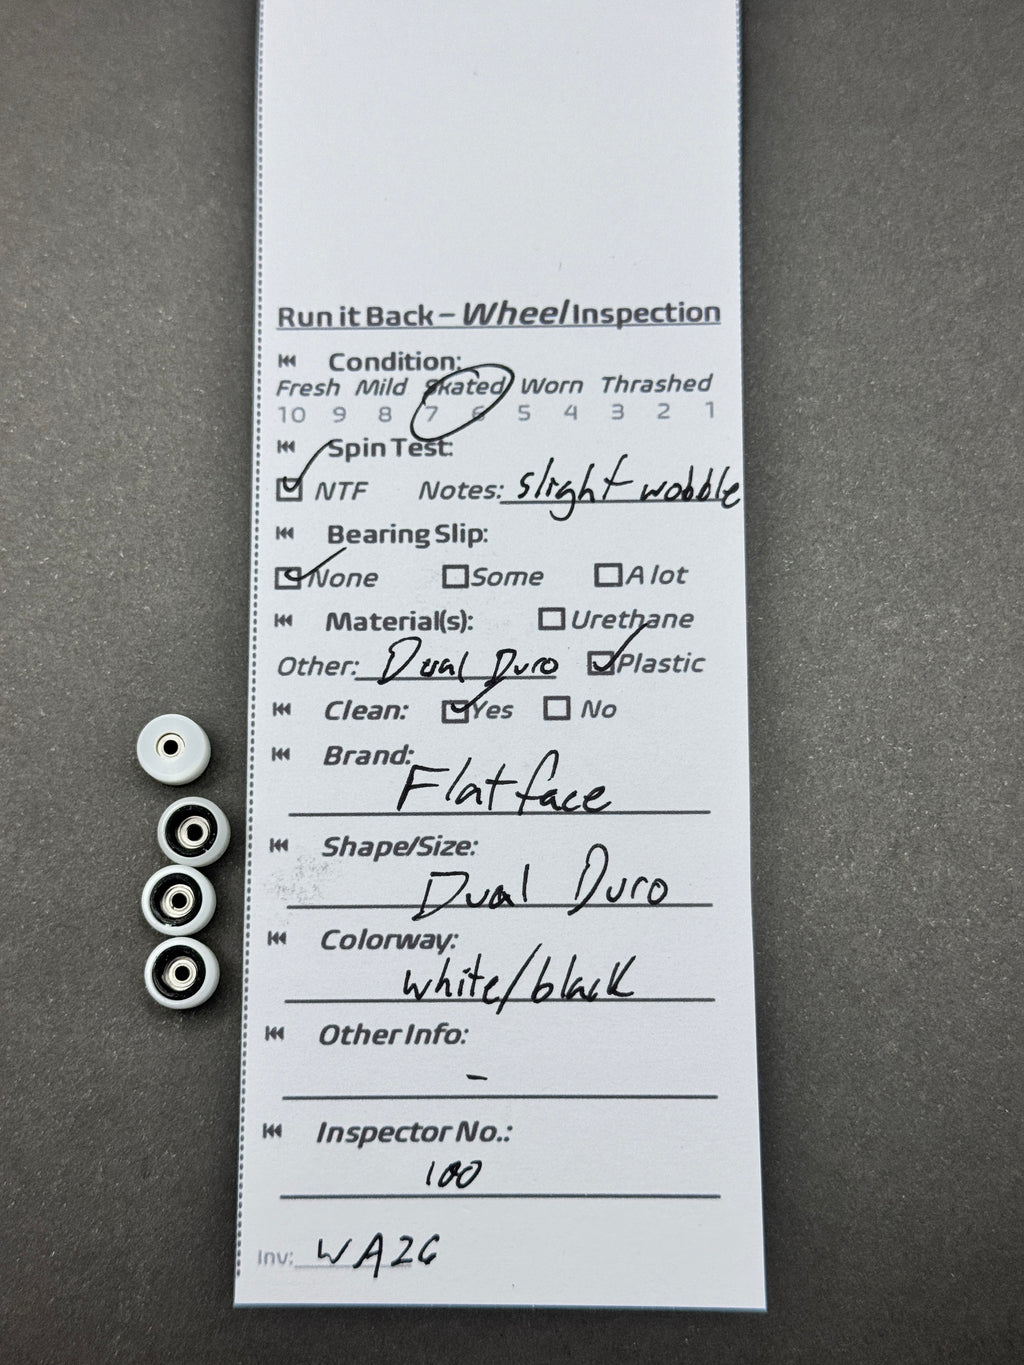 Run it Back – Wheel Inspection
Condition:
Fresh Mild Skated Worn Thrashed
10 9 8 7 6 5 4 3 2 1
Spin Test:
NTF Notes: slight wobble
Bearing Slip:
None Some A lot
Material(s): Urethane
Other: Dual Duro Plastic
Clean: Yes No
Brand:
Flatface
Shape/Size:
Dual Duro
Colorway:
white/black
Other Info:
-
Inspector No.:
100
Inv: WA26